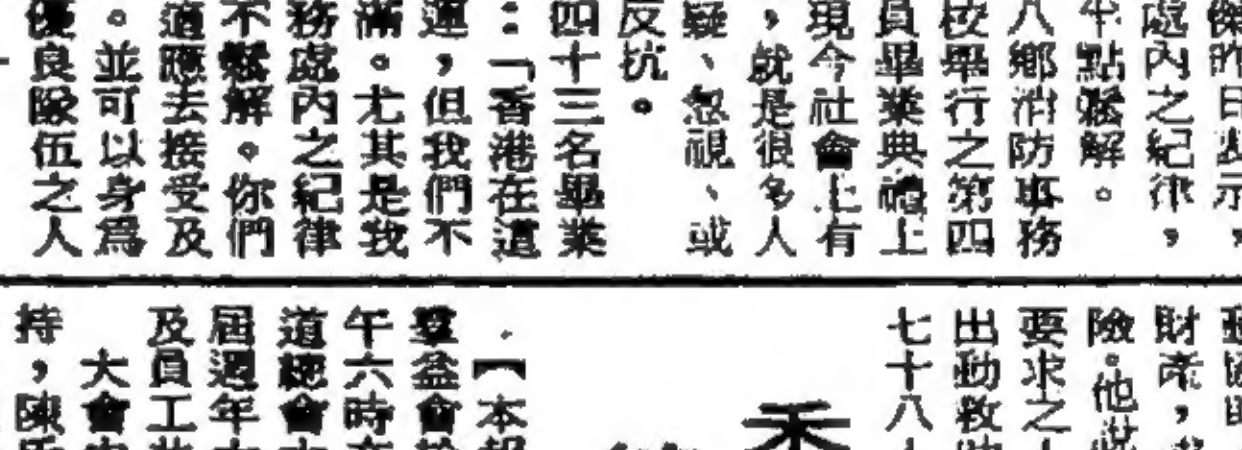 傑昨日
處內之紀律，
半點鬆解。
八鄉消防事務
校舉行之第四
員畢業典禮上
現今社會上有
，就是很多人
疑、忽視、或
反抗。
四十三名畢業
：「香港在這
運，但我們不
滿。尤其是我
務處內之紀律
不鬆解。你們
道應去接受及
。並可以身爲
優良隊伍之人
財產，
險。他
要求之
出動救
七十八
禾
【本報
羣益會
午六時
道總會
屆週年
及員工
大會
持，陳